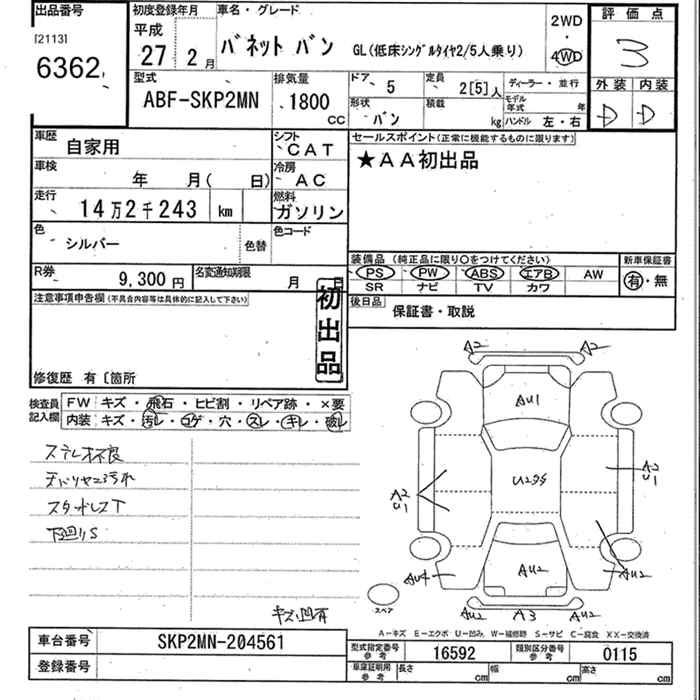 出品番号 初度登録年月 車名・グレード 2WD 評価点
[2113] 平成
6362 27年 2月 バネット バン GL(低床シングルタイヤ2/5人乗り) ・4WD 3
型式 排気量 ドア 5 定員 2[5]人 ディーラー・並行 外装 内装
ABF-SKP2MN 1800 CC 形状 バン 積載 kg モデル年式 年 D D
ハンドル 左・右
車歴 自家用 シフト CAT セールスポイント(正常に機能するものに限ります)
車検 年 月( 日) 冷房 AC ★AA初出品
走行 14万2千243 km 燃料 ガソリン
色 シルバー 色替 色コード
装備品 (純正品に限り○をつけてください) 新車保証書
R券 9,300円 名変通知期限 月 日 PS PW ABS エアB AW 有・無
SR ナビ TV カワ
注意事項申告欄(不具合内容等は具体的に記入して下さい) 初出品 後日品 保証書・取説
修復歴 有〔箇所
検査員記入欄 FW キズ・飛石・ヒビ割・リペア跡・×要
内装 キズ・汚レ・コゲ・穴・スレ・キレ・破レ
A2 A2
AU1
ステレオ不良
U2S
デバリヤニ汚れ
A2 U1 A2 U1
スタッドレスT
下廻りS
AU4 AU2 AU2
スペア
キズ凹有 AU2 A3 AU2
A-キズ E-エクボ U-凹み W-補修跡 S-サビ C-腐食 XX-交換済
車台番号 SKP2MN-204561 型式指定番号 参考 16592 類別区分番号 参考 0115
登録番号 車庫証明用 参考 長さ cm 幅 cm 高さ cm